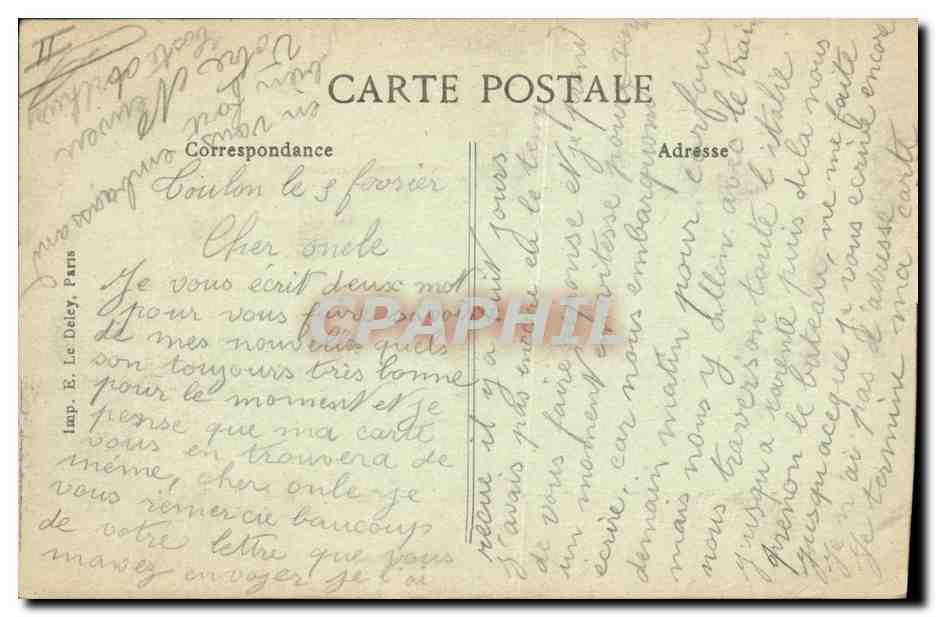 CARTE POSTALE
Correspondance
Adresse
Imp. E. Le Deley, Paris
CPAPHIL
Toulon le 5 fevrier
Cher oncle
Je vous écrit deux mot
pour vous faire savoir
de mes nouvelles
son toujours très bonne
pour le moment et je
pense que ma carte
vous en trouvera de
même, cher oncle je
vous remercie baucoup
de votre lettre que vous
mavez envoyer je l'ai
recue il y a huit jours
J'avais pas encore eu le temp
de vous faire réponse et je prend
un moment de vitesse pour vous
ecrire, car nous embarquons
demain matin pour corfou
mais nous y allon avec le train
nous traverson toute l'italie
jusqu'a tarente puis de la nous
prenon le bateau, ne me faite
jusqu'aceque je vous ecrive encore
je n'ai pas d'adresse
Je termine ma carte
en vous embrassant
bien fort
Votre Neuveu
II